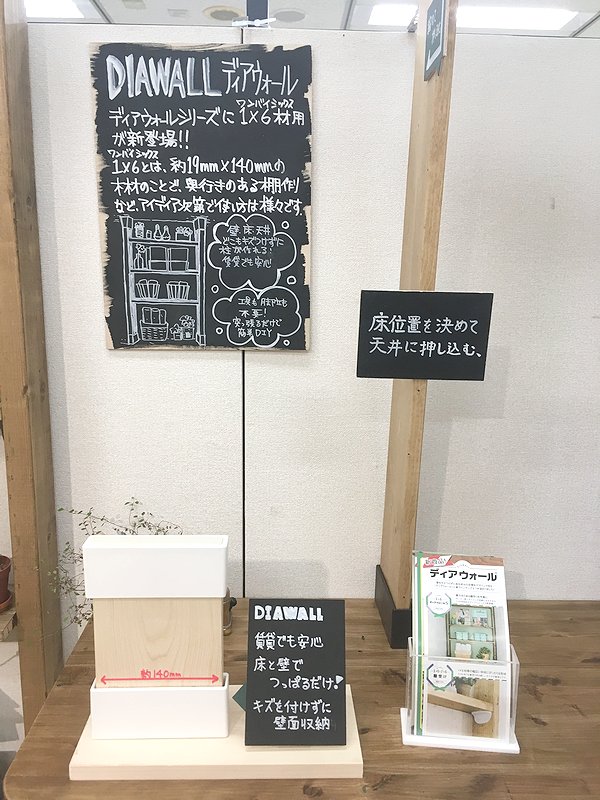 DIAWALL ディアウォール
ディアウォールシリーズに 1×6材用
ワンバイシックス
が新登場!!
ワンバイシックス
1×6とは、約19mm×140mmの
木材のことで、奥行きのある棚作り
など、アイディア次第で使い方は様々です。
壁、床、天井
どこもキズつけずに
柱が作れる!
賃貸でも安心
不要!
突っ張るだけで
簡単DIY
床位置を決めて
天井に押し込む、
約140mm
DIAWALL
賃貸でも安心
床と壁で
つっぱるだけ!
キズを付けずに
壁面収納
ディアウォール